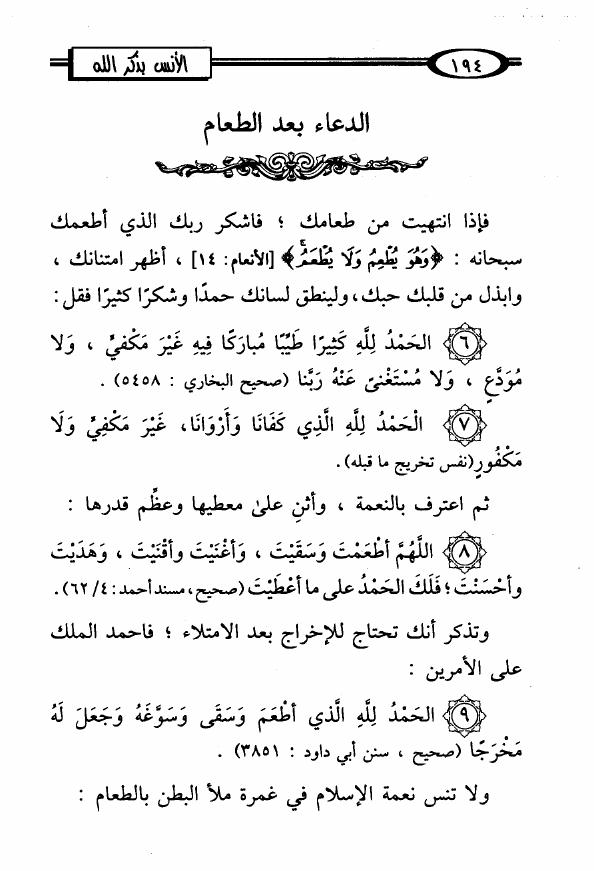 ١٩٤
الأنس بذكر الله
الدعاء بعد الطعام
فإذا انتهيت من طعامك ؛ فاشكر ربك الذي أطعمك
سبحانه : ﴿وَهُوَ يُطْعِمُ وَلَا يُطْعَمُ ۚ﴾ [الأنعام: ١٤] ، أظهر امتنانك ،
وابذل من قلبك حبك، ولينطق لسانك حمدًا وشكرًا كثيرًا فقل:
٦ الحَمْدُ لِلَّهِ كَثِيرًا طَيِّبًا مُبَارَكًا فِيهِ غَيْرَ مَكْفيٍّ ، وَلا
مُوَدَّعٍ ، وَلا مُسْتَغْنىً عَنْهُ رَبَّنا (صحيح البخاري : ٥٤٥٨) .
٧ الْحَمْدُ لِلَّهِ الَّذِي كَفَانَا وَأَرْوَانَا، غَيْرَ مَكْفِيٍّ وَلَا
مَكْفُورٍ(نفس تخريج ما قبله).
ثم اعترف بالنعمة ، وأثنِ علىٰ معطيها وعظِّم قدرها :
٨ اللَّهُمَّ أطْعَمْتَ وَسَقَيْتَ ، وَأغْنَيْتَ وأقْنَيْتَ ، وَهَدَيْتَ
وأحْسَنْتَ؛ فَلَكَ الحَمْدُ على ما أعْطَيْتَ (صحيح، مسند أحمد: ٤/ ٦٢).
وتذكر أنك تحتاج للإخراج بعد الامتلاء ؛ فاحمد الملك
على الأمرين :
٩ الحَمْدُ لِلَّهِ الَّذي أطْعَمَ وَسَقَى وَسَوَّغَهُ وَجَعَلَ لَهُ
مَخْرَجًا (صحيح ، سنن أبي داود : ٣٨٥١) .
ولا تنس نعمة الإسلام في غمرة ملأ البطن بالطعام :